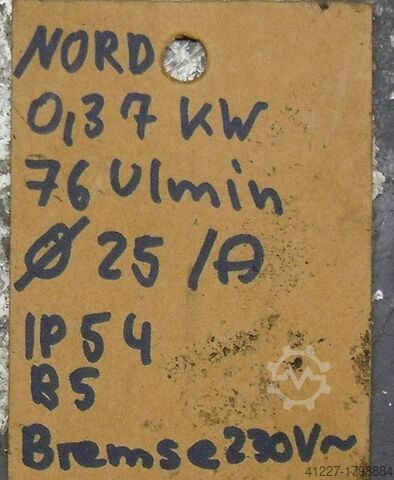 NORD
0,37 KW
76 U/min
Ø 25 /A
IP54
B5
Bremse 230V~
41227-1798884